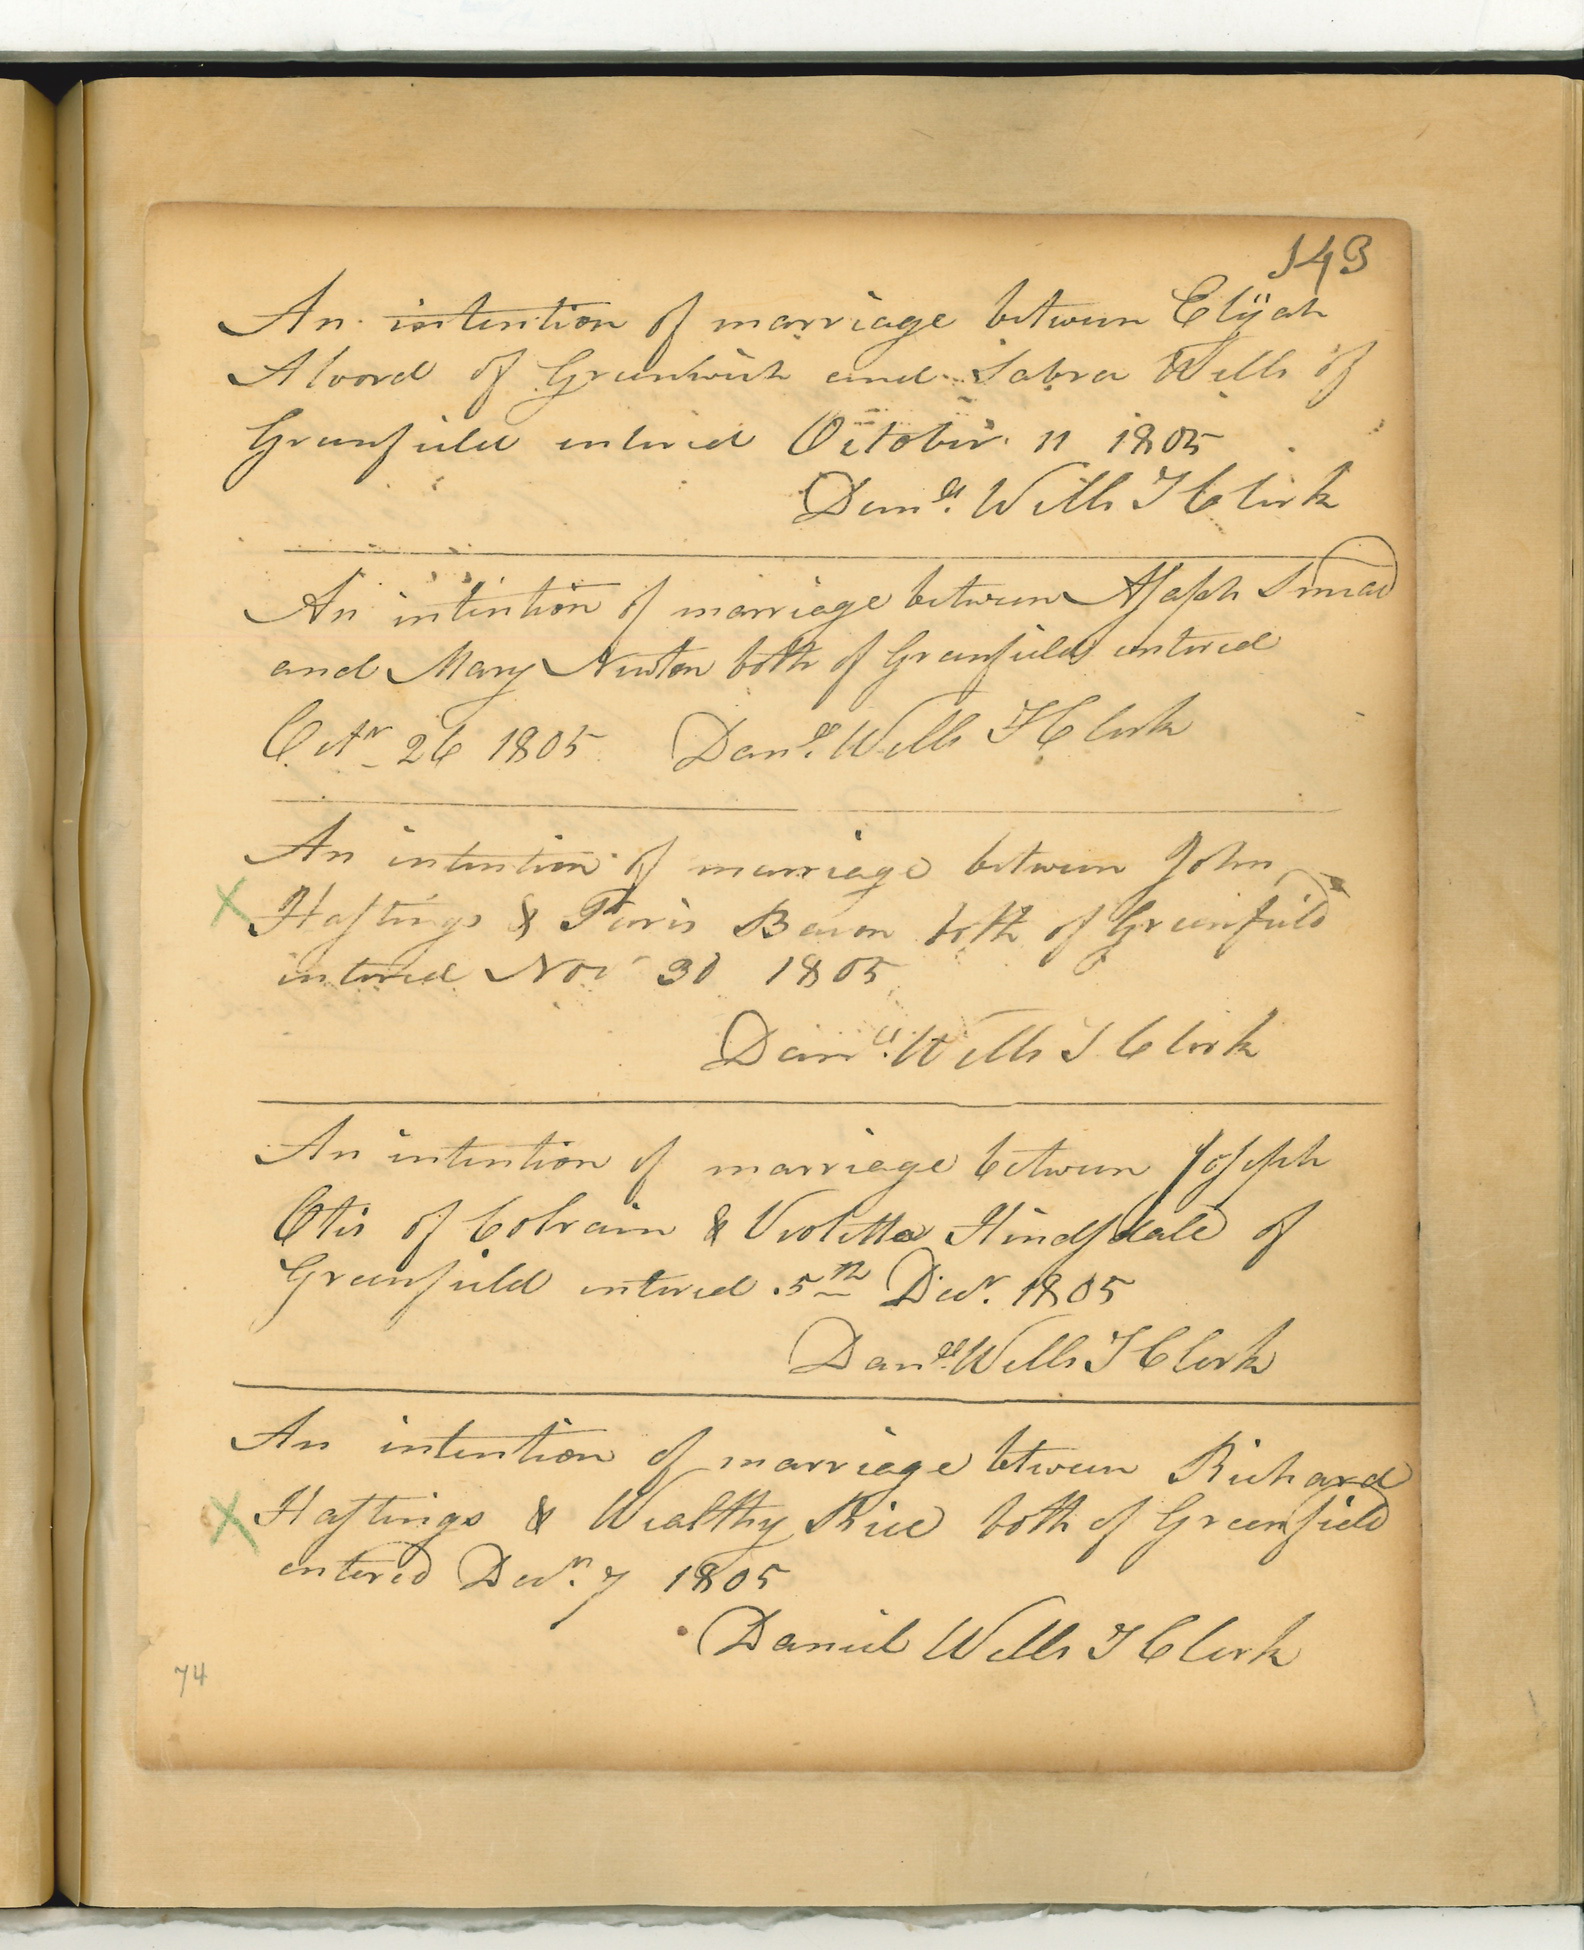 143
An intention of marriage between Elijah
Alvord of Greenwich and Sabra Wells of
Greenfield entered October 11 1805
Danll. Wells T Clerk
An intention of marriage between Asaph Smead
and Mary Newton both of Greenfield entered
Octr 26 1805 Danll. Wells T Clerk
An intention of marriage between John
X Hastings & Bacon both of Greenfield
entered Nov 30 1805
Danll. Wells T Clerk
An intention of marriage between Joseph
Otis of Colrain & Violetta Hindsdale of
Greenfield entered 5th Decr. 1805
Danll. Wells T Clerk
An intention of marriage between Richard
X Hastings & Wealthy Rice both of Greenfield
entered Decr. 7 1805
Daniel Wells T Clerk
74